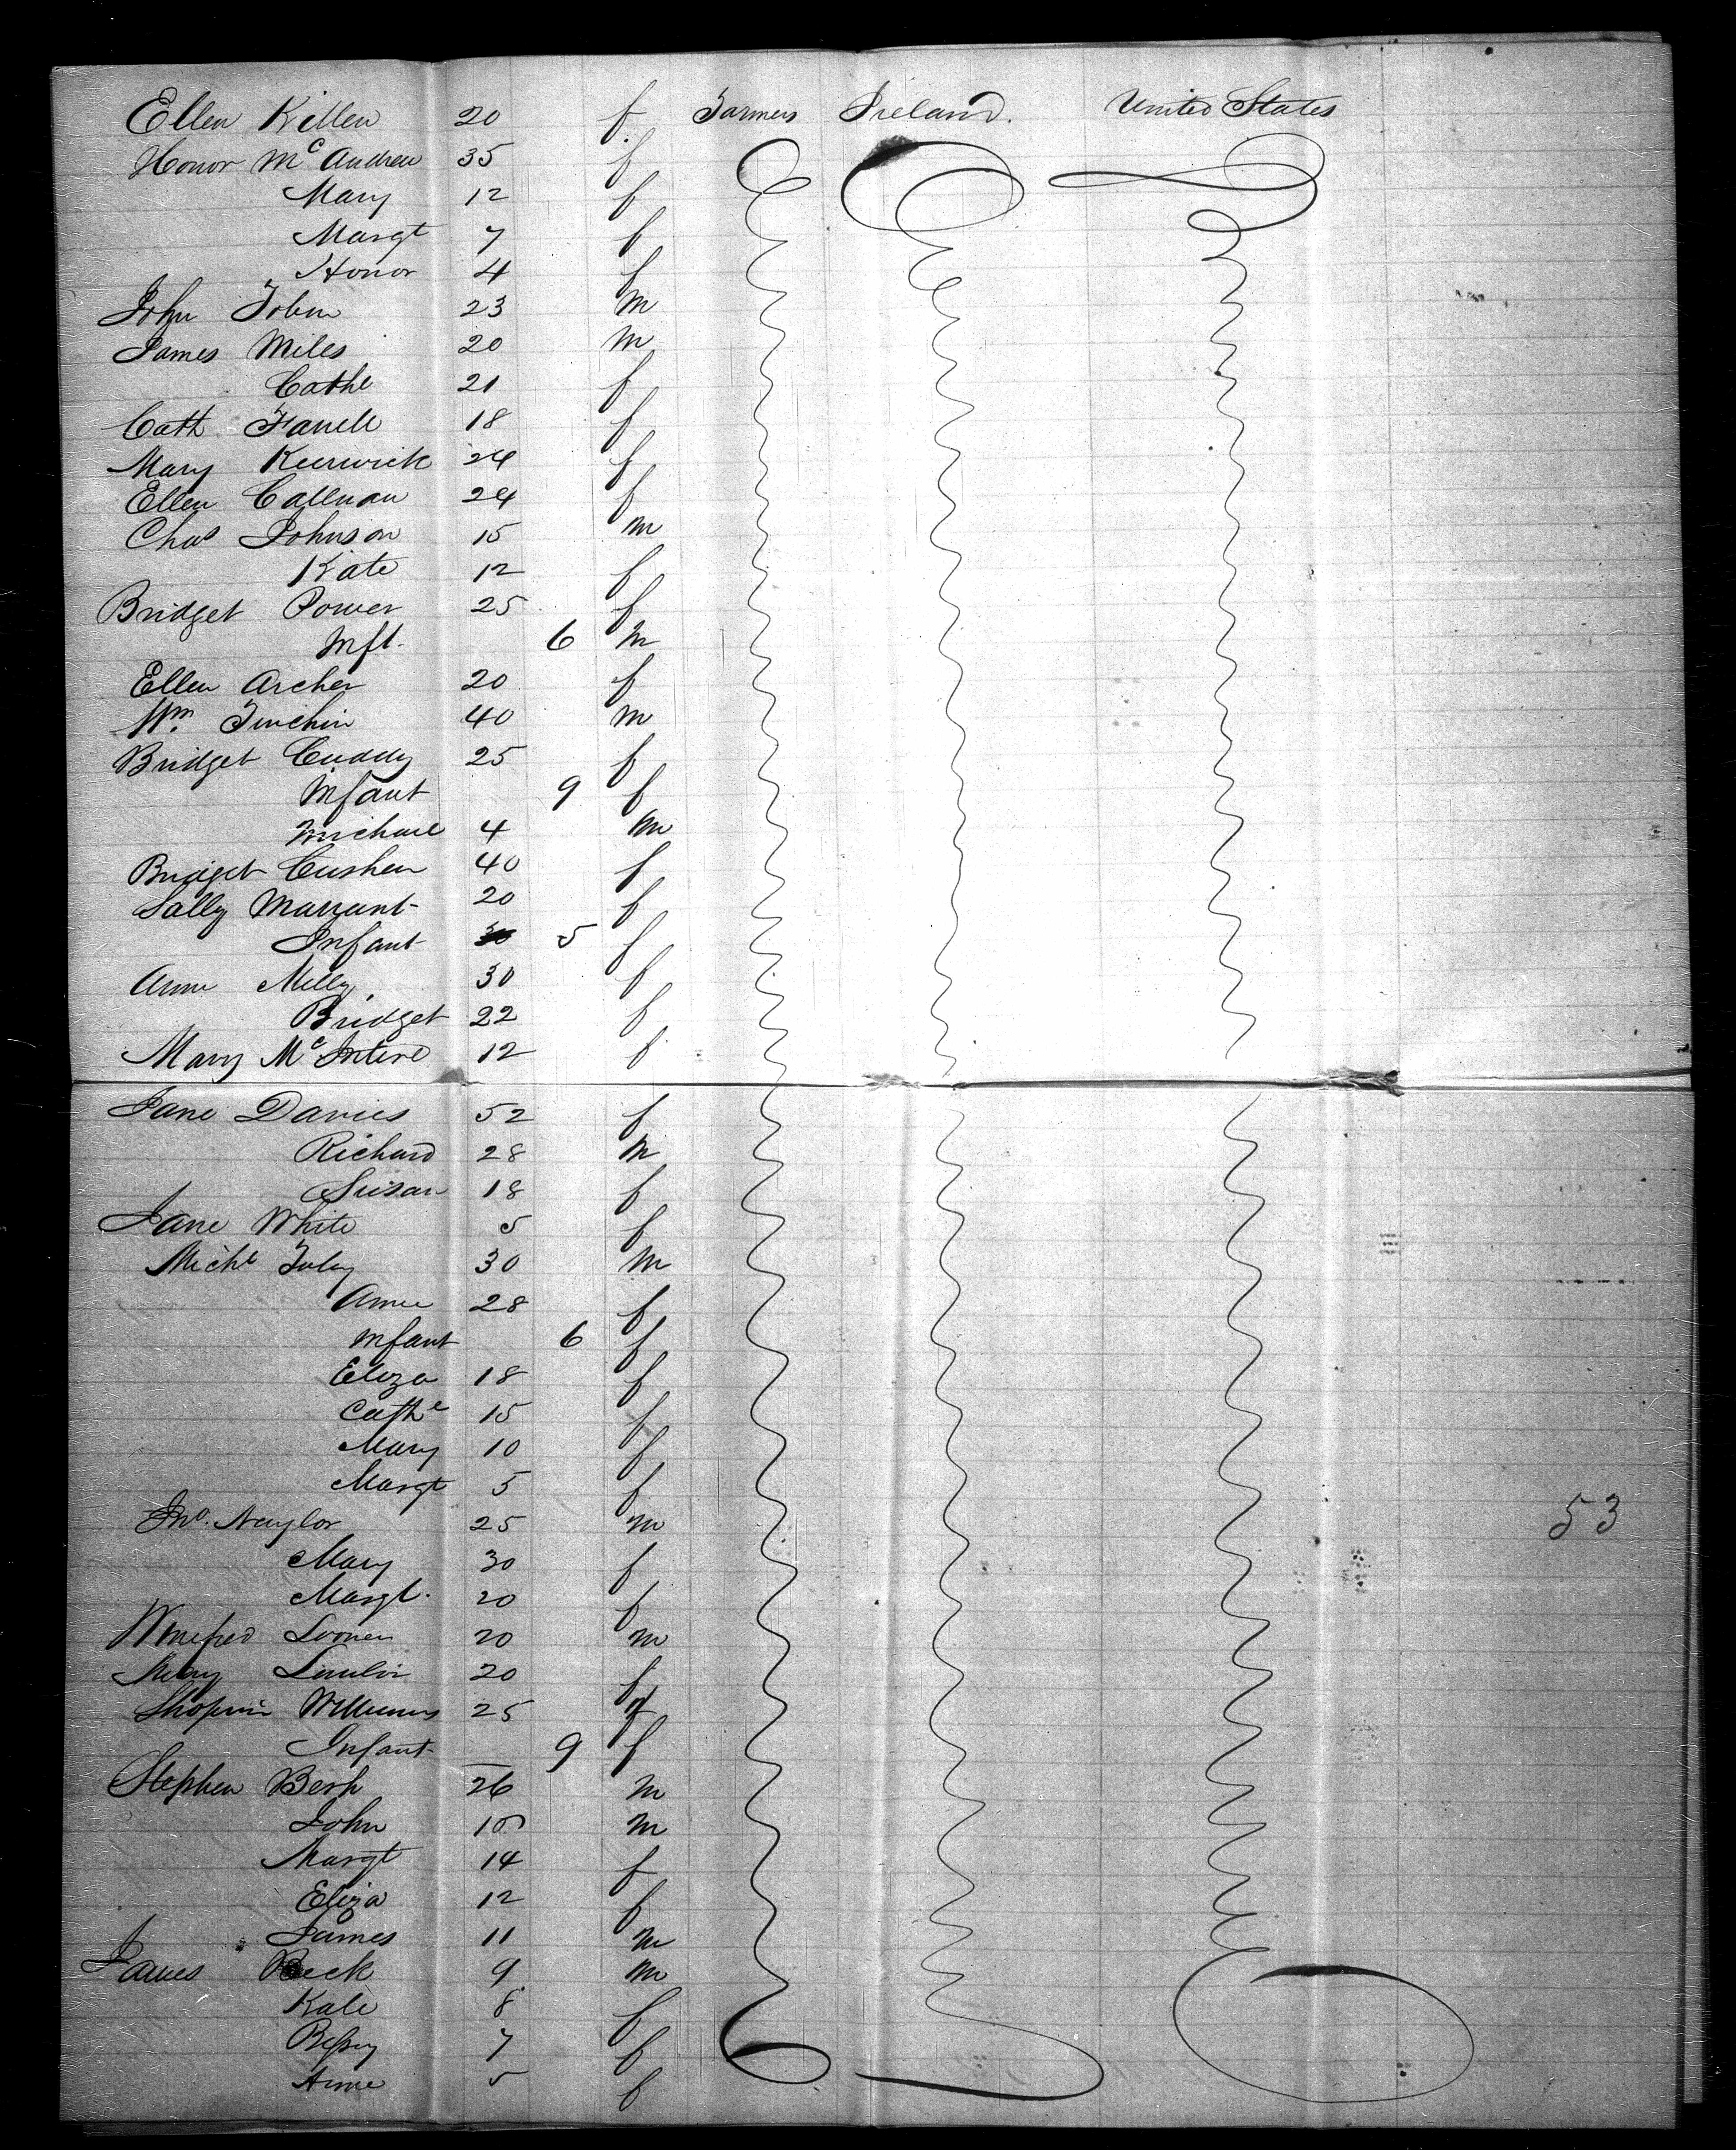 Ellen Killen 20 f Farmers Ireland. United States
Honor McAndrew 35 f
Mary 12 f
Margt 7 f
Honor 4 f
John Tobin 23 m
James Miles 20 m
Cathe 21 f
Cath Farrell 18 f
Mary Keerwick 24 f
Ellen Callnan 24 f
Chas Johnson 15 m
Kate 12 f
Bridget Power 25 f
Inft. 6 m
Ellen Archer 20 f
Wm. 40 m
Bridget Cuddy 25 f
Infant 9 f
Michael 4 m
Bridget Cushen 40 f
Sally 20 f
Infant 5 f
Anne Melly 30 f
Bridget 22 f
Mary McIntire 12 f
Jane Davies 52 f
Richard 28 m
Susan 18 f
Jane White 5 f
Michl Foley 30 m
Anne 28 f
Infant 6 f
Eliza 18 f
Cathe 15 f
Mary 10 f
Margt 5 f
Jno. Naylor 25 m
53
Mary 30 f
Margt. 20 f
Winefred 20 m
Mary 20 f
Williams 25 f
Infant 9 f
Stephen 26 m
John m
Margt 14 f
Eliza 12 f
James 11 m
James Beck 9 m
Kate 8 f
Bessy 7 f
Anne 5 f